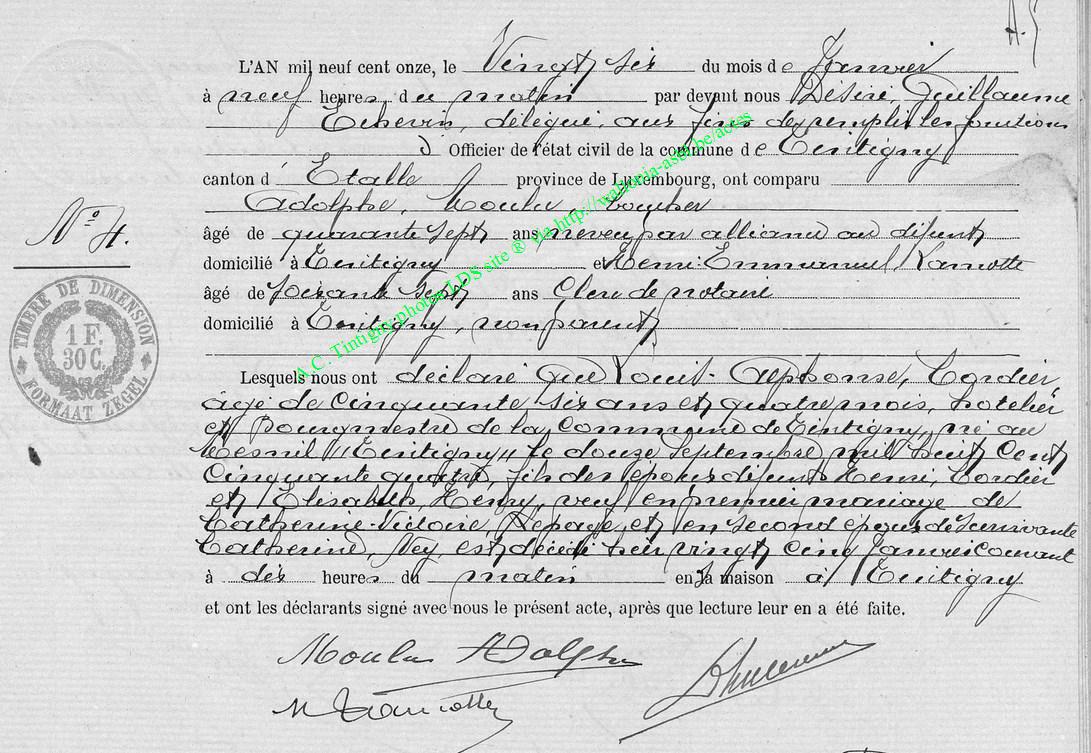 L'AN mil neuf cent onze, le Vingt six du mois de Janvier
à neuf heures du matin par devant nous Désiré, Guillaume
délégué aux fins de remplir les fonctions
d Officier de l'état civil de la commune de Tintigny
canton d Etalle province de Luxembourg, ont comparu
Adolphe, Moulu,
âgé de quarante sept ans neveu par alliance au défunt
domicilié à Tintigny et Henri-Emmanuel, Ramotte
âgé de soixante sept ans Clerc de notaire
domicilié à Tintigny, non parent
Nº 4.
TIMBRE DE DIMENSION
1 F. 30 C.
FORMAAT ZEGEL
A.C. Tintigny photos LDS site ® via http://wallonia-asbl.be/actes
Lesquels nous ont déclaré que Louis-Alphonse, Cordier,
âgé de cinquante six ans et quatre mois, hotelier
et Bourgmestre de la Commune de Tintigny, né au
Mesnil "Tintigny" le douze Septembre mil huit cent
cinquante quatre, fils des époux défunts Henri, Cordier
et Elisabeth, Henry, veuf en premier mariage de
Catherine-Victoire, Lepage, et en second époux de survivante
Catherine, Ney, est décédé hier vingt cinq Janvier courant
à dix heures du matin en sa maison à Tintigny
et ont les déclarants signé avec nous le présent acte, après que lecture leur en a été faite.
Moulu Adolphe